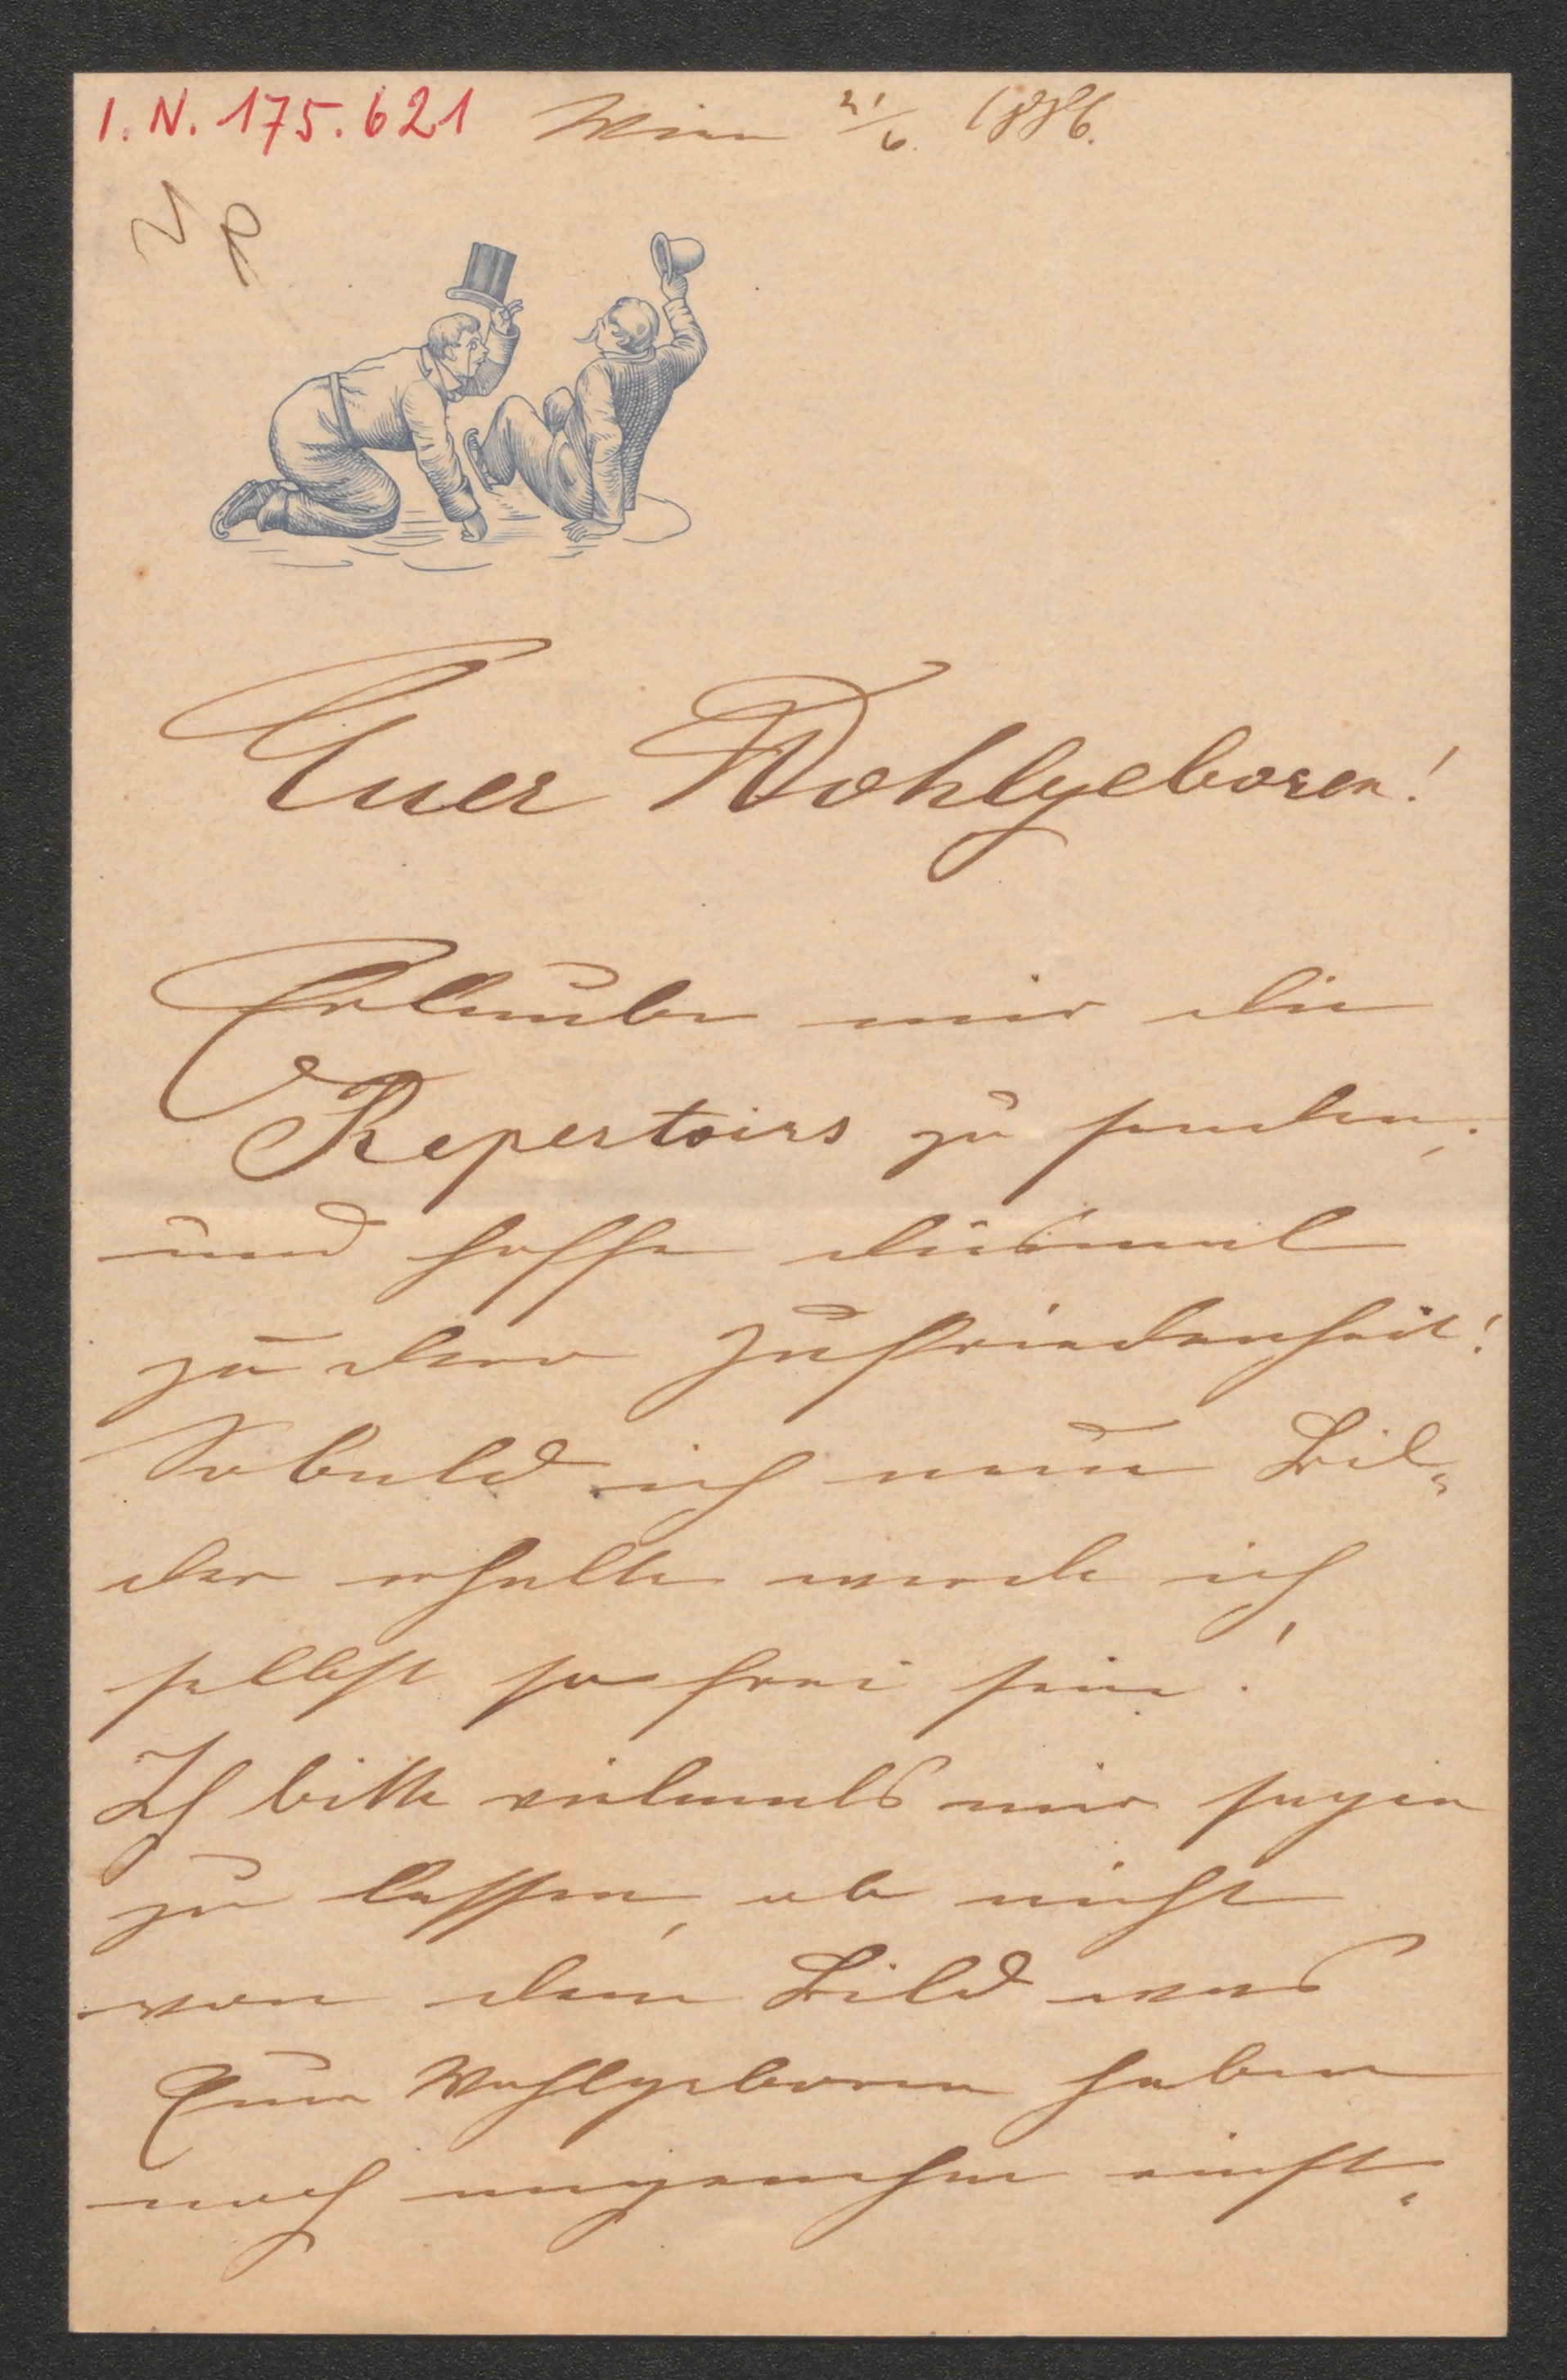 I. N. 175.621 Wien 21/6. 1886.
Euer Wohlgeboren!
Erlaube mir die
Repertoirs zu senden,
und hoffe diesmal
zu derer Zufriedenheit!
Sobald ich neue Bil„
der erhalte werde ich
selbst so frei sein!
Ich bitte vielmals mir sagen
zu lassen, ob nicht
von dem Bild was
Euer Wohlgeboren haben
noch angenehm